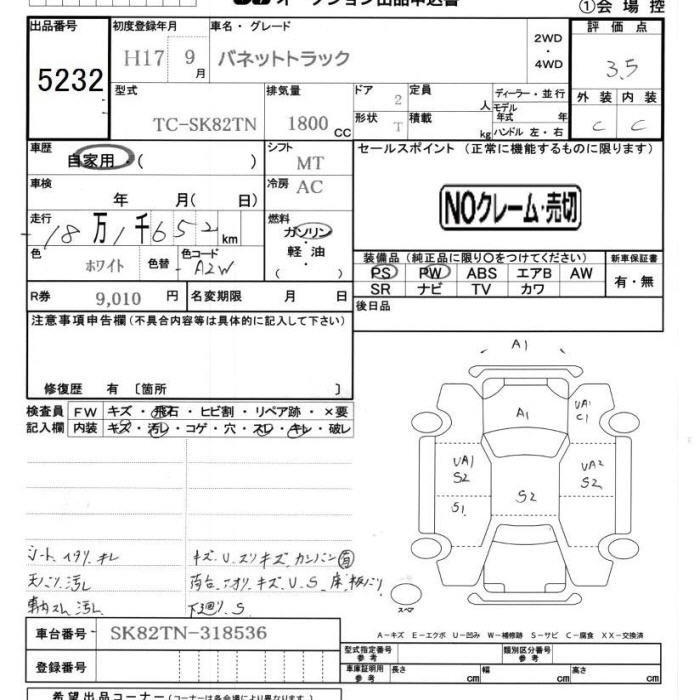 オークション出品申込書
①会場控
出品番号
5232
初度登録年月
H17 9月
車名・グレード
バネットトラック
2WD
・
4WD
評価点
3.5
型式
TC-SK82TN
排気量
1800 CC
ドア
2
定員
人
ディーラー・並行
モデル年式 年
外装 内装
C C
形状
T
積載
kg
ハンドル 左・右
車歴
自家用・( )
シフト
MT
セールスポイント (正常に機能するものに限ります)
車検
年 月( 日)
冷房
AC
NOクレーム・売切
走行
18万1千652 km
燃料
ガソリン
・
軽・油
( )
色
ホワイト
色替
色コード
A2W
装備品(純正品に限り〇をつけてください)
新車保証書
PS PW ABS エアB AW
有・無
SR ナビ TV カワ
R券
9,010 円
名変期限 月 日
後日品
注意事項申告欄(不具合内容等は具体的に記入して下さい)
修復歴 有〔箇所 〕
検査員
記入欄
FW キズ・飛石・ヒビ割・リペア跡・×要
内装 キズ・汚レ・コゲ・穴・スレ・キレ・破レ
A1
A1
UA1
C1
UA1
S2
UA2
S2
S2
S1
スペア
シート イタリ キレ
キズ U. スリキズ カンバン 有
天バリ 汚レ
荷台. アオリ. キズ. U. S
汚レ
下廻り. S
A－キズ E－エクボ U－凹み W－補修跡 S－サビ C－腐食 XX－交換済
車台番号
SK82TN-318536
型式指定番号
参考
類別区分番号
参考
登録番号
車庫証明用
参考
長さ cm
幅 cm
高さ cm
希望出品コーナー(コーナーは各会場により異なります)